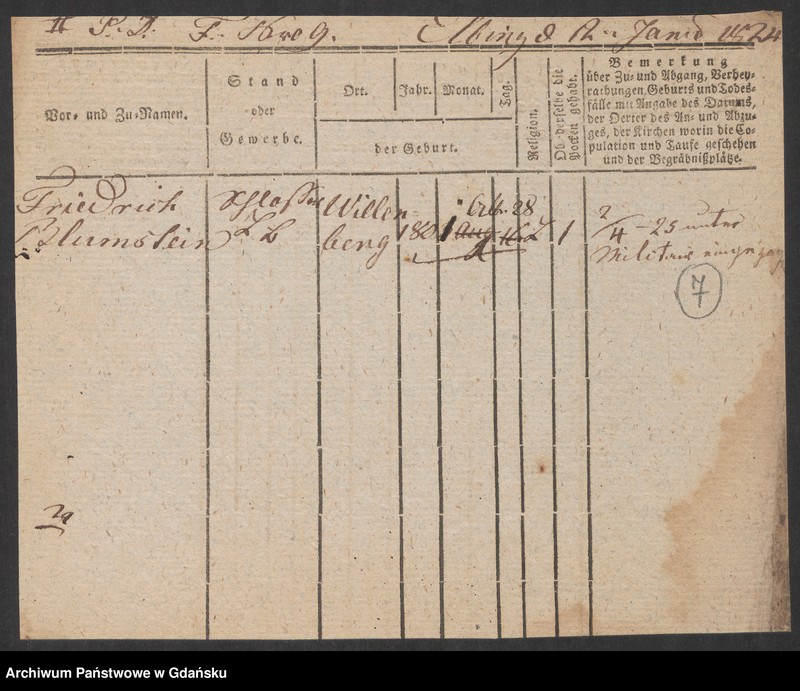 F. Krog. Elbing d 12. Janu 1824
Vor- und Zu-Namen.
Stand
oder
Gewerbe.
Ort. Jahr. Monat. Tag.
der Geburt.
Religion.
Ob derselbe die
Pocken gehabt.
Bemerkung
über Zu- und Abgang, Verhey-
rathungen, Geburts und Todes-
fälle mit Angabe des Datums,
der Oerter des An- und Abzu-
ges, der Kirchen worin die Co-
pulation und Taufe geschehen
und der Begräbnißplätze.
Friedrich
Blumstein
Willen
berg
1801
Aug
28
1
2/4 - 25 unter
Militair
7
Archiwum Państwowe w Gdańsku